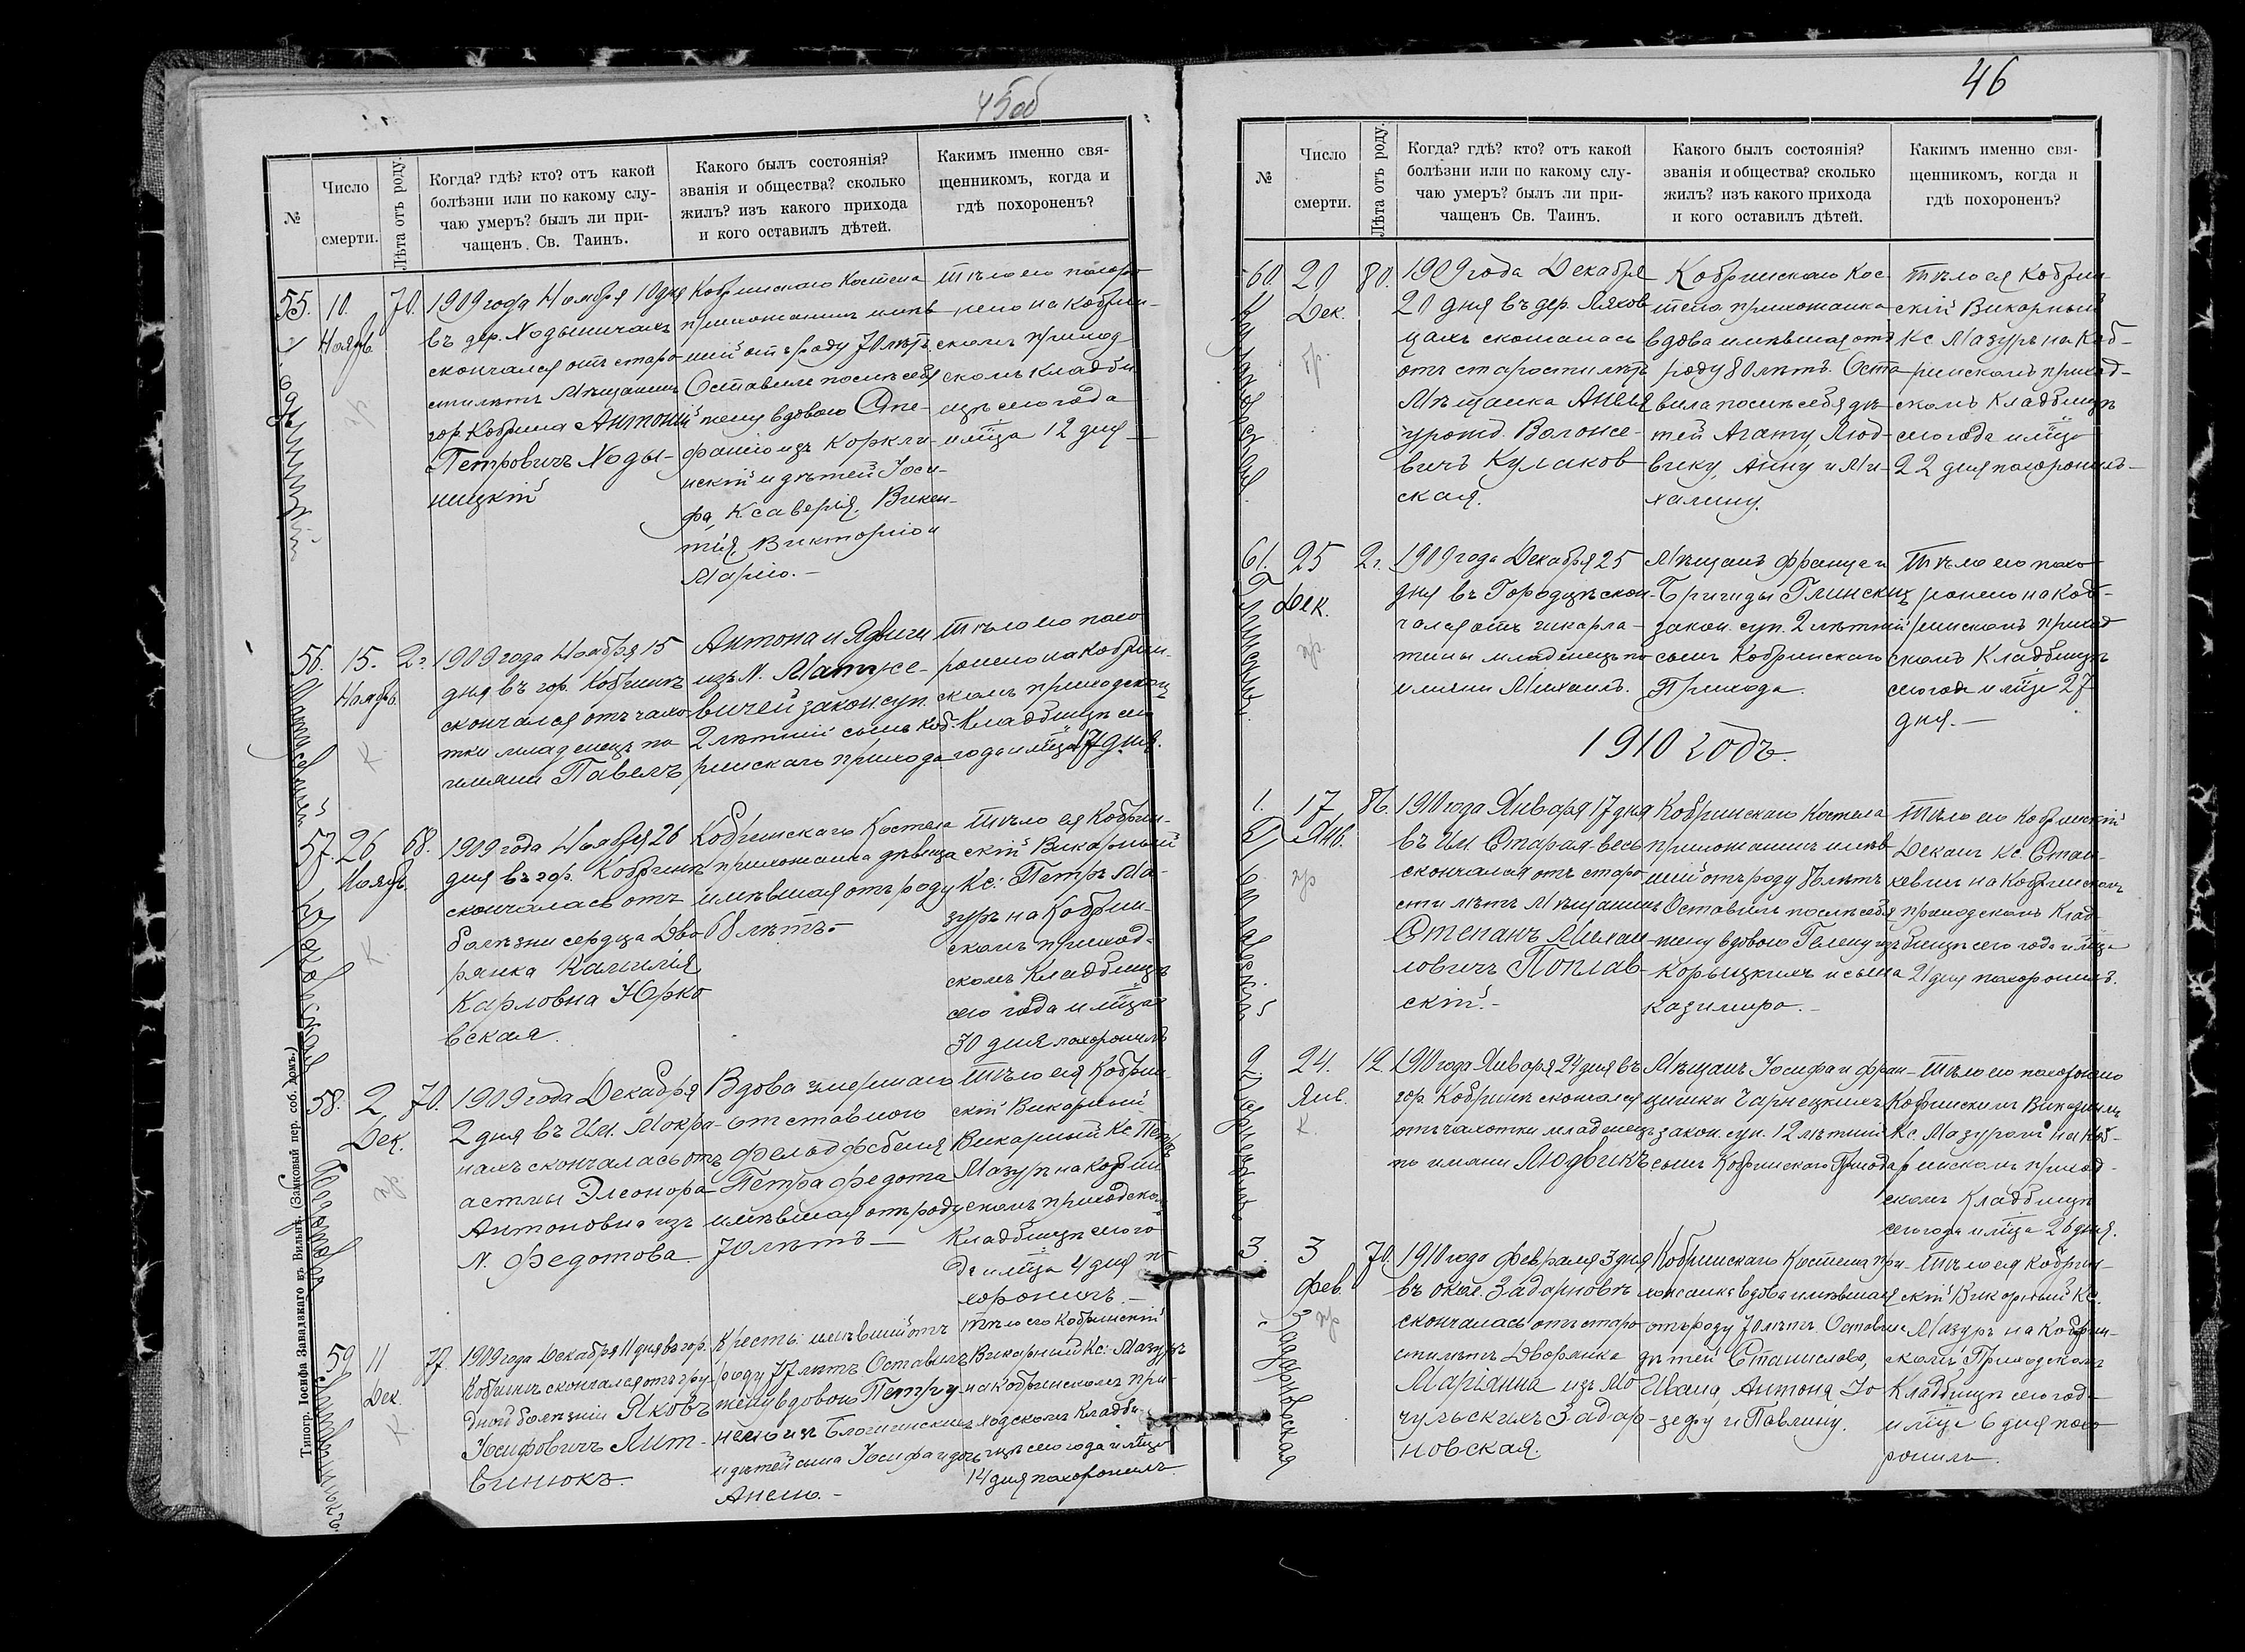 45об
№
Число
смерти.
Лѣта отъ роду.
Когда? гдѣ? кто? отъ какой
болѣзни или по какому слу-
чаю умеръ? былъ ли при-
чащенъ Св. Таинъ.
Какого былъ состоянія?
званія и общества? сколько
жилъ? изъ какого прихода
и кого оставилъ дѣтей.
Какимъ именно свя-
щенникомъ, когда и
гдѣ похороненъ?
55.
10.
Ноябр.
70.
1909 года Ноября 10 дня
въ дер. Ходыничахъ
скончался отъ старо
сти лѣтъ Мѣщанинъ
гор. Кобрина Антоній
Петровичъ Ходы-
ницкій
Кобринскаго Костела
прихожанинъ имѣв
шій отъ роду 70 лѣтъ.
Оставилъ послѣ себя
жену вдовою Сте-
фанію изъ
и дѣтей Іоси-
фа, Ксаверія, Викен-
тія, Викторію и
Марію. —
Тѣло его похоро
нено на Кобрин-
скомъ приход
скомъ кладби
щѣ сего года
и м̃ца 12 дня
56.
15.
Ноябр.
2 г.
К.
1909 года Ноября 15
дня въ гор. Кобринѣ
скончался отъ чахо
тки младенецъ по
имяни Павелъ
Антона и Ядвиги
изъ N. Матусе-
вичей закон. суп.
2 лѣтній сынъ Коб-
ринскаго прихода
Тѣло его похо
ронено на Кобрин-
скомъ приходском
Кладбищѣ сего
года и м̃ца 17 дня.
57.
26
Ноябр.
68.
К.
Юрковская
1909 года Ноября 26
дня въ гор. Кобринѣ
скончалась отъ
болѣзни сердца Дво
рянка Камилія
Карловна Юрко
вская.
Кобринскаго Костела
прихожанка дѣвица
имѣвшая отъ роду
68 лѣтъ. —
Тѣло ея Кобрин-
скій Викарный
Кс: Петръ Ма-
зуръ на Кобрин-
скомъ приход-
скомъ Кладбищѣ
сего года и м̃ца
30 дня похоронилъ
58.
2
Дек.
70.
пр.
Федотова
1909 года Декабря
2 дня въ Им. Мокра-
нахъ скончалась отъ
астмы Элеонора
Антоновна изъ
N. Федотова.
Вдова умершаго
отставного
Фельдфебеля
Петра Федота
имѣвшая отъ роду
70 лѣтъ —
Тѣло ея Кобрин-
скій Викарный
Викарный Кс. Петръ
Мазуръ на Кобрин
скомъ приходском
Кладбищѣ сего го
да и м̃ца 4 дня по
хоронилъ. —
59
11
Дек.
77.
К.
Литвинюкъ.
1909 года Декабря 11 дня въ гор.
Кобринѣ скончался отъ гру
дной болѣзни Яковъ
Іосифовичъ Лит-
винюкъ.
Крест: имѣвшій отъ
роду 77 лѣтъ Оставилъ
жену вдовою Петру-
нелю изъ
и дѣтей сына Іосифа и дочь
Анелю. —
Тѣло его Кобринскій
Викарный Кс: Мазуръ
на Кобринскомъ при-
ходскомъ Кладби-
щѣ сего года и м̃ца
14 дня похоронилъ.
Типогр. Іосифа Завадзкаго въ Вильнѣ. (Замковый пер. соб. домъ.)
46
№
Число
смерти.
Лѣта отъ роду.
Когда? гдѣ? кто? отъ какой
болѣзни или по какому слу-
чаю умеръ? былъ ли при-
чащенъ Св. Таинъ.
Какого былъ состоянія?
званія и общества? сколько
жилъ? изъ какого прихода
и кого оставилъ дѣтей.
Какимъ именно свя-
щенникомъ, когда и
гдѣ похороненъ?
60.
20
Дек.
80.
пр.
Кулаковская
1909 года Декабря
20 дня въ дер. Ляхов
цахъ скончалась
отъ старости лѣтъ
Мѣщанка
урожд.
вичъ Кулаков
ская.
Кобринскаго Кос-
тела прихожанка
вдова имѣвшая отъ
роду 80 лѣтъ. Оста
вила послѣ себя дѣ-
тей Агату, Люд-
вику, Анну и Ми-
халину.
Тѣло ея Кобрин-
скій Викарный
Кс Мазуръ на Коб-
ринскомъ приход-
скомъ Кладбищѣ
сего года и м̃ца
22 дня похоронилъ —
61.
25
Дек.
2 г.
пр.
Глинскій
1909 года Декабря 25
дня въ Городцѣ скон-
чался отъ шкарла-
тины младенецъ по
имяни Михаилъ.
Мѣщанъ Франца и
Бригиды Глинскихъ
закон. суп. 2 лѣтній
сынъ Кобринскаго
Прихода.
Тѣло его похо-
ронено на Коб-
ринскомъ приход
скомъ Кладбищѣ
сего года и м̃ца 27
дня. —
1910 годъ.
1.
17
Янв.
86.
пр
Поплавскій
1910 года Января 17 дня
въ Им Старая-весь
скончался отъ старо
сти лѣтъ Мѣщанинъ
Степанъ Михаи
ловичъ Поплав-
скій. —
Кобринскаго Костела
прихожанинъ имѣв
шій отъ роду 86 лѣтъ
Оставилъ послѣ себя
жену вдовою Гелену изъ
Корыцкихъ и сына
Казимира. —
Тѣло его Кобринскій
Деканъ Кс. Стан-
кевичъ на Кобринскомъ
приходскомъ Клад-
бищѣ сего года и м̃ца
21 дня похоронилъ.
2.
24.
Янв.
12
К.
Чарнецкій
1910 года Января 24 дня въ
гор. Кобринѣ скончался
отъ чахотки младенецъ
по имяни Людвикъ
Мѣщанъ Іосифа и Фран-
цишки Чарнецкихъ
закон. суп. 12 лѣтній
сынъ Кобринскаго Прихода
Тѣло его похоронено
Кобринскимъ Викарнымъ
Кс. Мазуромъ на Коб-
ринскомъ приход-
скомъ Кладбищѣ
сего года и м̃ца 26 дня.
3.
3
Фев.
70.
пр
Задарновская
1910 года Февраля 3 дня
въ окол. Задарновѣ
скончалась отъ старо
сти лѣтъ Дворянка
Маріанна изъ Мо
чульскихъ Задар-
новская.
Кобринскаго Костела при-
хожанка вдова имѣвшая
отъ роду 70 лѣтъ. Оставила
дѣтей Станислава,
Ивана, Антона, Іо
зефу и Павлину.
Тѣло ея Кобрин-
скій Викарный Кс.
Мазуръ на Кобрин-
скомъ Приходскомъ
Кладбищѣ сего года
и м̃ца 6 дня похо
ронилъ.